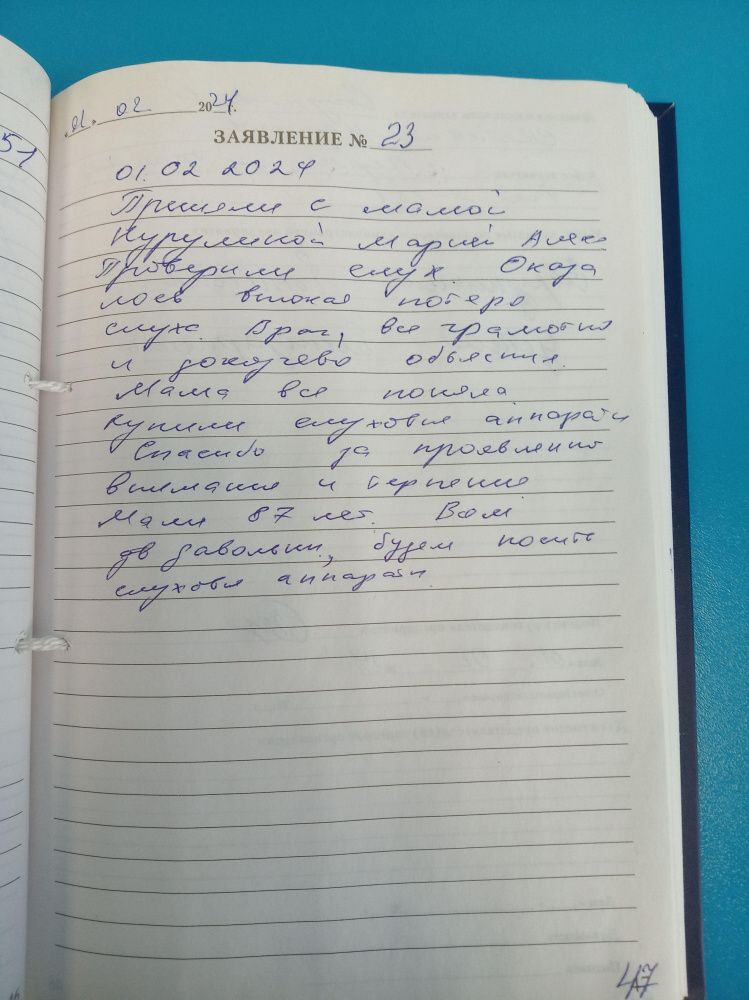 51
«01» 02 2024 г.
ЗАЯВЛЕНИЕ № 23
01.02 2024
Пришели с мамой
Нурулиной Марией Алекс
Проверили слух. Оказа
лось высокая потеря
слуха. Врач, все грамотно
и доходчево объяснил.
Мама все поняла
купили слуховые аппараты
Спасибо за проявленно
внимание и терпение
Маме 87 лет. Вам
довольны, будем носить
слуховые аппараты
47